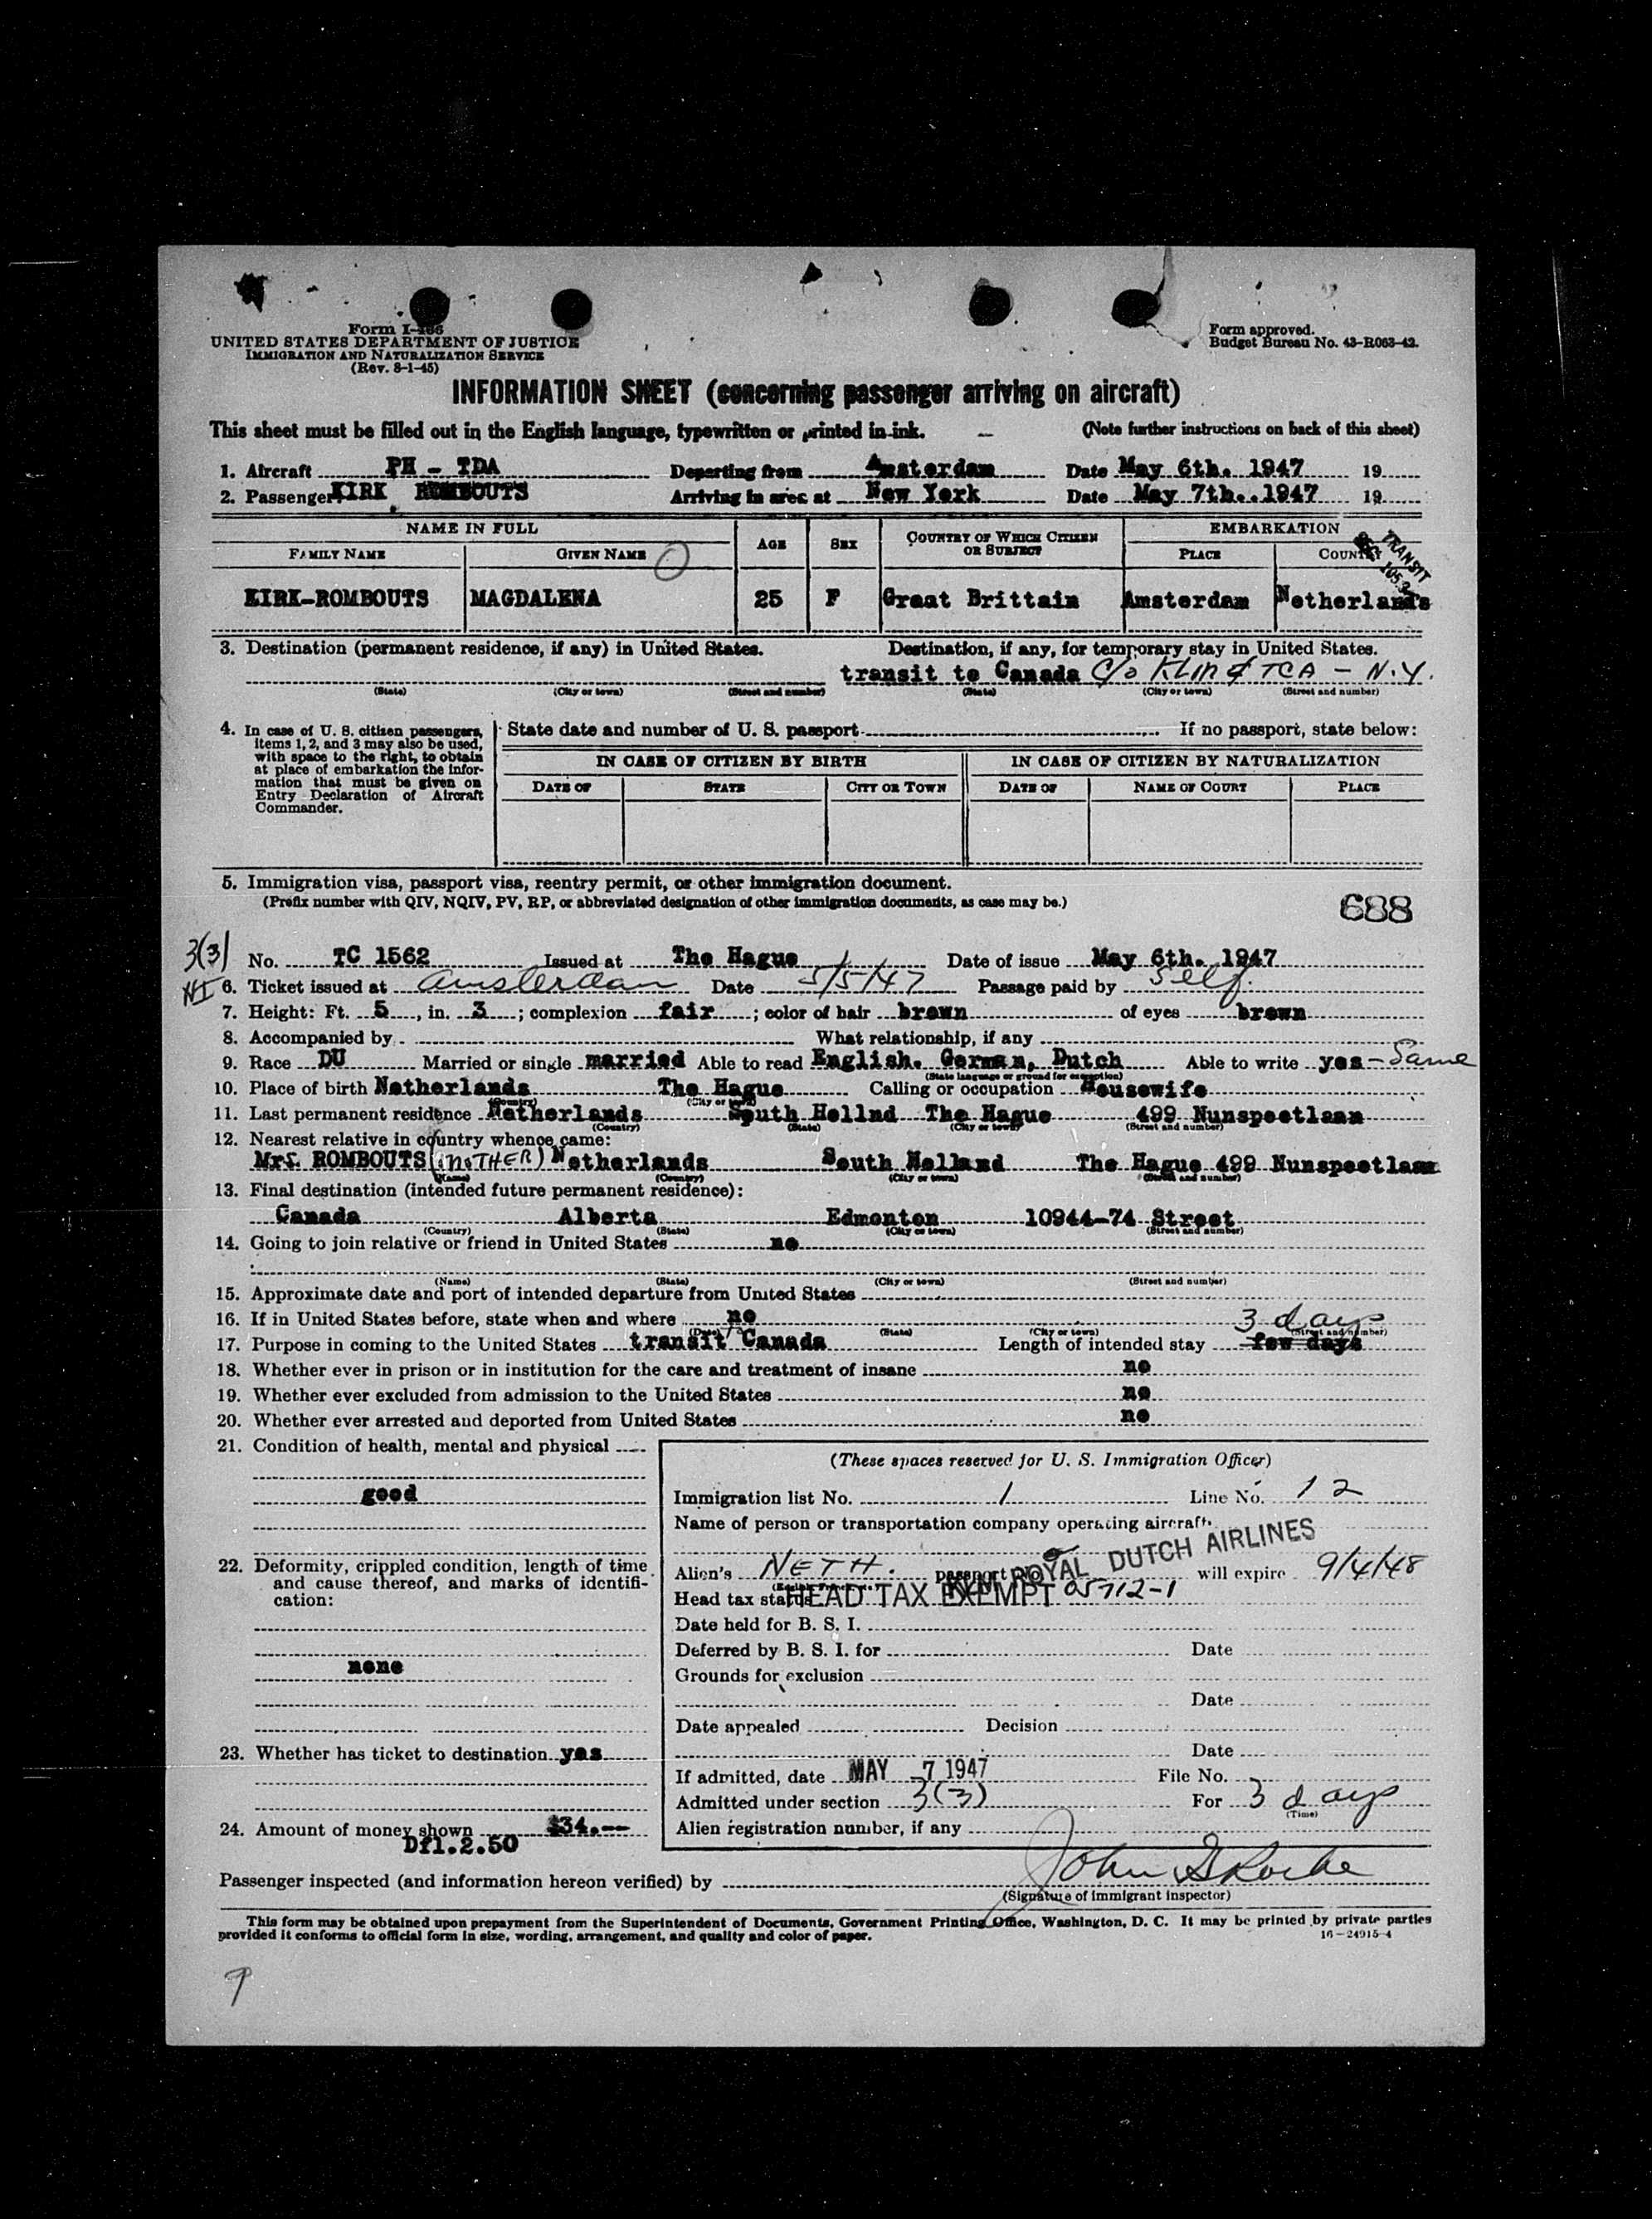 Form I-466
UNITED STATES DEPARTMENT OF JUSTICE
IMMIGRATION AND NATURALIZATION SERVICE
(Rev. 8-1-45)
Form approved.
Budget Bureau No. 43-R063-42.
INFORMATION SHEET (concerning passenger arriving on aircraft)
This sheet must be filled out in the English language, typewritten or printed in ink. (Note further instructions on back of this sheet)
1. Aircraft PH - TDA Departing from Amsterdam Date May 6th. 1947 19
2. Passenger KIRK ROMBOUTS Arriving in at New York Date May 7th..1947 19
NAME IN FULL AGE SEX COUNTRY OF WHICH CITIZEN OR SUBJECT EMBARKATION
FAMILY NAME GIVEN NAME PLACE COUNTRY
TRANSIT
KIRK-ROMBOUTS MAGDALENA 25 F Great Brittain Amsterdam Netherlands
3. Destination (permanent residence, if any) in United States. Destination, if any, for temporary stay in United States.
transit to Canada C/o KLM & TCA - N.Y.
(State) (City or town) (Street and number) (State) (City or town) (Street and number)
4. In case of U. S. citizen passengers, items 1, 2, and 3 may also be used, with space to the right, to obtain at place of embarkation the information that must be given on Entry Declaration of Aircraft Commander.
State date and number of U. S. passport If no passport, state below:
IN CASE OF CITIZEN BY BIRTH IN CASE OF CITIZEN BY NATURALIZATION
DATE OF STATE CITY OR TOWN DATE OF NAME OF COURT PLACE
5. Immigration visa, passport visa, reentry permit, or other immigration document.
(Prefix number with QIV, NQIV, PV, RP, or abbreviated designation of other immigration documents, as case may be.)
688
3(3) No. TC 1562 Issued at The Hague Date of issue May 6th. 1947
NI 6. Ticket issued at Amsterdam Date 5/5/47 Passage paid by Self.
7. Height: Ft. 5, in. 3; complexion fair; color of hair brown of eyes brown
8. Accompanied by What relationship, if any
9. Race DU Married or single married Able to read English. German, Dutch Able to write yes - Same
(State language or ground for exemption)
10. Place of birth Netherlands The Hague Calling or occupation Housewife
(Country) (City or town)
11. Last permanent residence Netherlands South Hollnd The Hague 499 Nunspeetlaan
(Country) (State) (City or town) (Street and number)
12. Nearest relative in country whence came:
Mrs. ROMBOUTS (MOTHER) Netherlands South Holland The Hague 499 Nunspeetlaan
(Name) (Country) (City or town) (Street and number)
13. Final destination (intended future permanent residence):
Canada Alberta Edmonton 10944-74 Street
(Country) (State) (City or town) (Street and number)
14. Going to join relative or friend in United States no
(Name) (State) (City or town) (Street and number)
15. Approximate date and port of intended departure from United States
16. If in United States before, state when and where no
(Date) (State) (City or town) (Street and number)
3 days
17. Purpose in coming to the United States transit to Canada Length of intended stay few days
18. Whether ever in prison or in institution for the care and treatment of insane no
19. Whether ever excluded from admission to the United States no
20. Whether ever arrested and deported from United States no
21. Condition of health, mental and physical
good
22. Deformity, crippled condition, length of time and cause thereof, and marks of identification:
none
23. Whether has ticket to destination yes
24. Amount of money shown $34.--
Dfl.2.50
(These spaces reserved for U. S. Immigration Officer)
Immigration list No. 1 Line No. 12
Name of person or transportation company operating aircraft
KLM ROYAL DUTCH AIRLINES
Alien's NETH. passport No. 05712-1 will expire 9/4/48
Head tax status HEAD TAX EXEMPT
Date held for B. S. I.
Deferred by B. S. I. for Date
Grounds for exclusion
Date
Date appealed Decision
Date
If admitted, date MAY 7 1947 File No.
Admitted under section 3(3) For 3 days
(Time)
Alien registration number, if any
Passenger inspected (and information hereon verified) by John G Roche
(Signature of immigrant inspector)
This form may be obtained upon prepayment from the Superintendent of Documents, Government Printing Office, Washington, D. C. It may be printed by private parties
provided it conforms to official form in size, wording, arrangement, and quality and color of paper. 16-24915-4